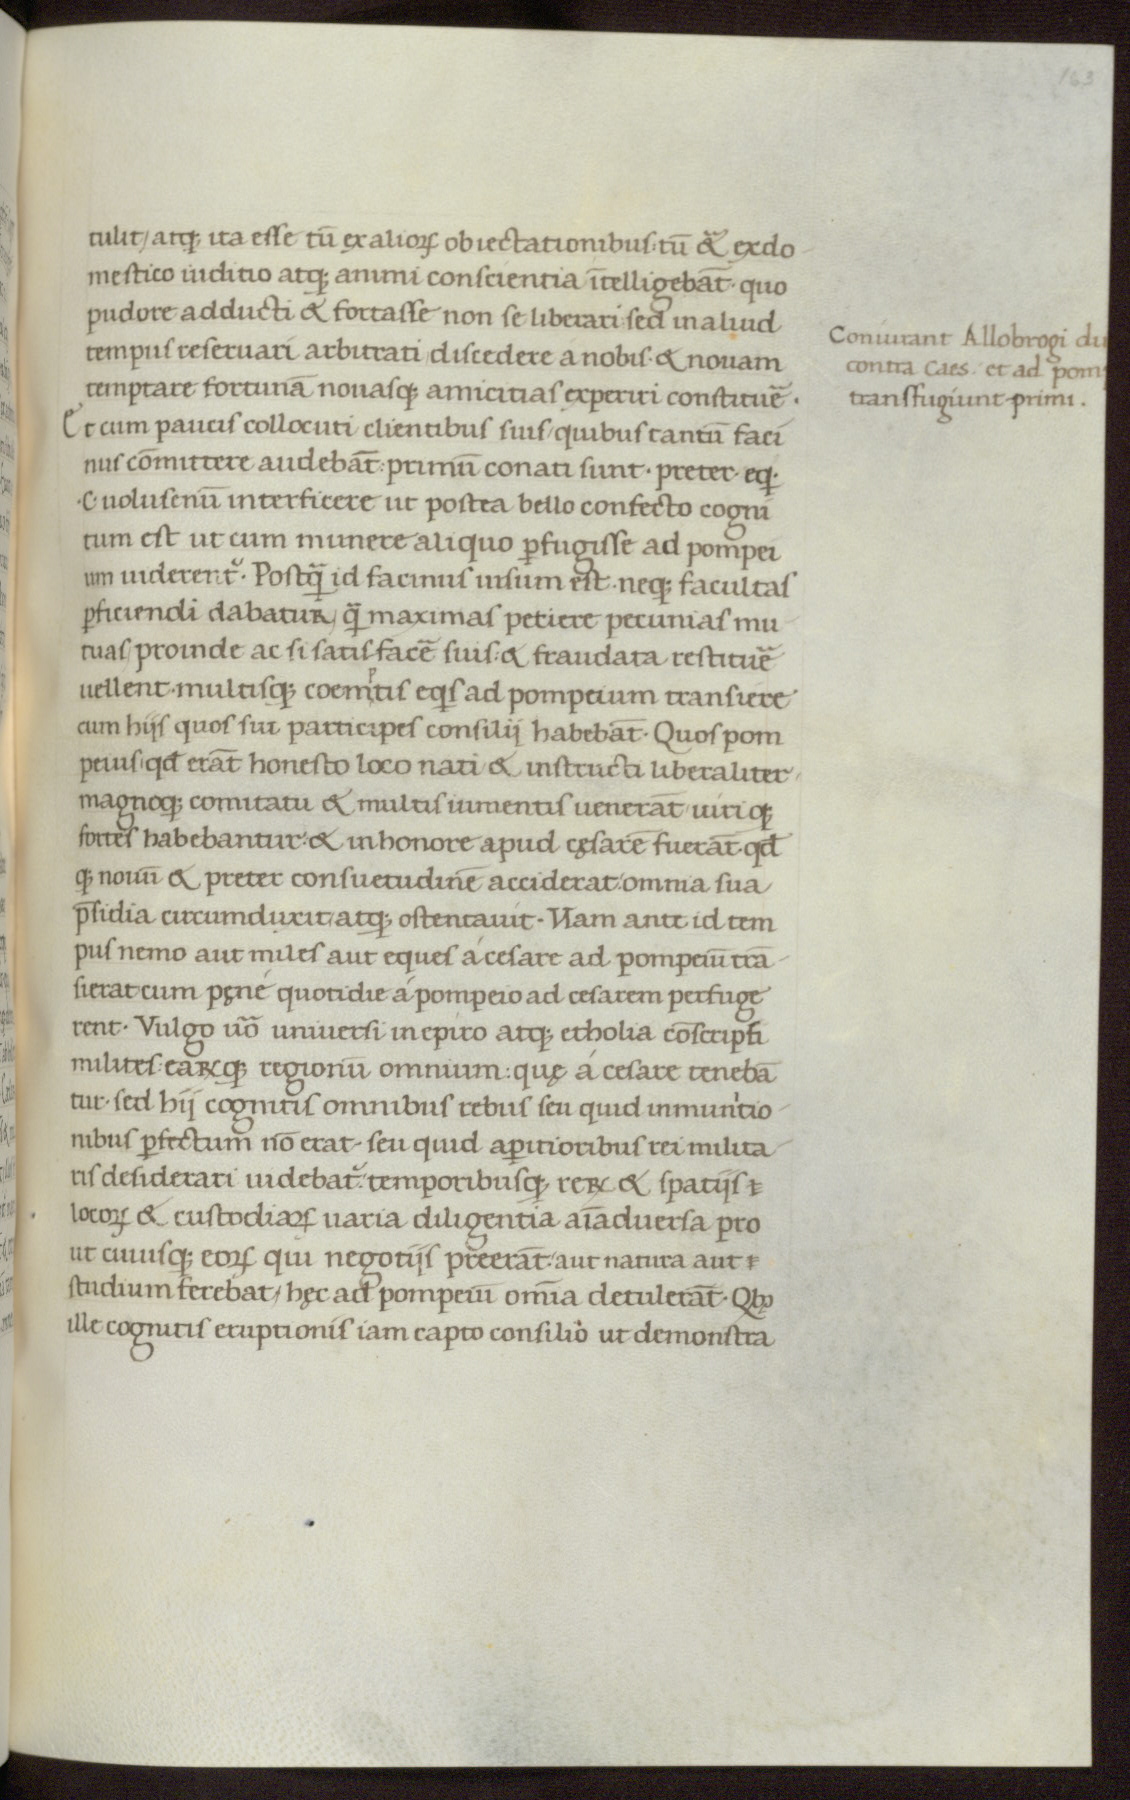 163
tulit/ atq; ita esse tū ex alioꝝ obiectationibus: tū &̄ exdo-
mestico iuditio atq; animi conscientia ītelligebāt· quo
pudore adducti & fortasse non se liberari sed in aliud
tempus reseruari arbitrati discedere a nobis· & nouam
temptare fortunā nouasq; amicitias experiri constituē̄·
Et cum paucis collocuti clientibus suis/ quibus tantū faci
nus cōmittere audebāt: primū conati sunt· preter· eq̄·
·C· uolusenū interficere ut postea bello confecto cogni
tum est ut cum munere aliquo ꝑfugisse ad pompei
um uiderent᷑· Postq̄ id facinus uisum est· neq; facultas
ꝑficiendi dabatur/ q̄ maximas petiere pecunias mu-
tuas/ proinde ac si satisfacē̄ suis: & fraudata restituē̄
uellent· multisq; coemptis eqˢ ad pompeium transiere
cum hijs quos sui participes consilij habebāt· Quos pom
peius/ qđ erāt honesto loco nati & instructi liberaliter/
magnoq; comitatu & multis iumentis uenerāt uiri q;
fortes habebantur: & in honore apud cęsarē fuerāt· qđ
q; nouū & preter consuetudinē acciderat: omnia sua
p̄sidia circumduxit/ atq; ostentauit· Nam ante id tem
pus nemo aut miles aut eques á cesare ad pompeiū trā-
sierat cum pęné quotidie á pompeio ad cesarem perfuge
rent· Vulgo uō uniuersi in epiro atq; etholia cōscripti
milites· earꝝq; regionū omnium: quę á cesare tenebā
tur· sed hij cognitis omnibus rebus seu quid inmunitio-
nibus ꝑfectum nō erat· seu quid aꝑitioribus rei milita-
ris desiderari uidebat᷑: temporibusq; rerꝝ & spatijs
locoꝝ & custodiaꝝ uaria diligentia aīaduersa pro
ut cuiusq; eoꝝ qui negotijs preerāt: aut natura aut
studium ferebat/ hęc ad pompeiū omīa detulerāt· Qbꝫ
ille cognitis eruptionis iam capto consilio ut demonstra
Coniurant Allobrogi du
contra Caes. et ad pom
transfugiunt primi.